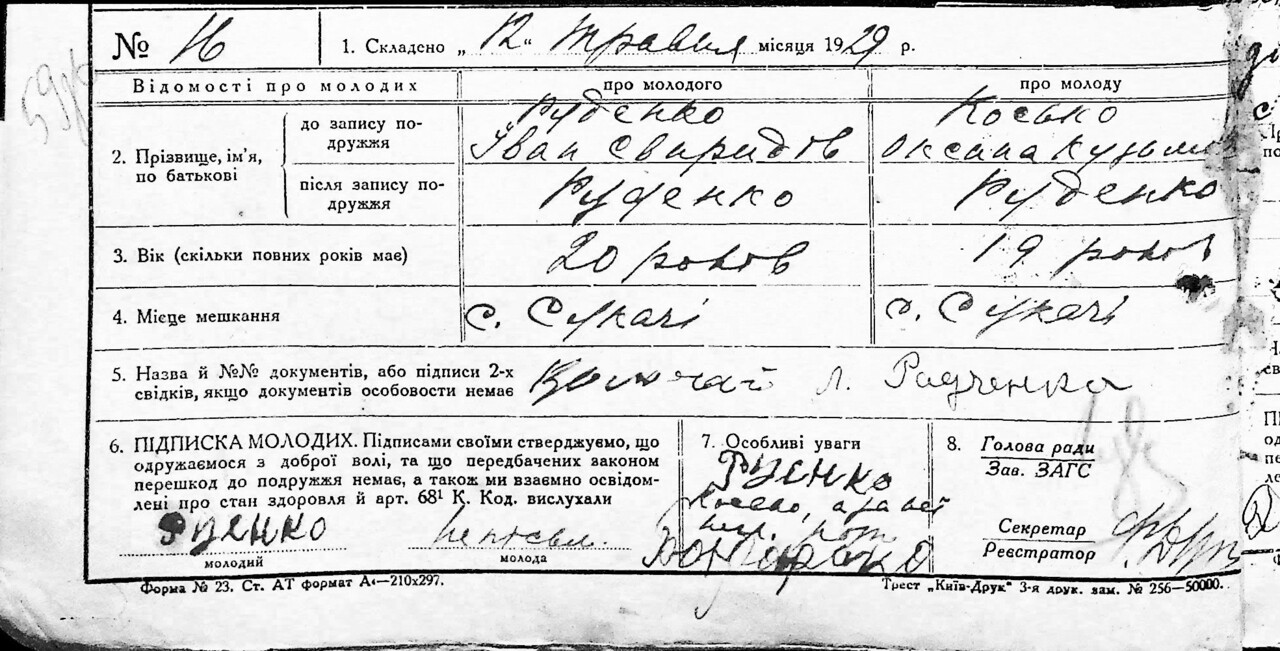 № 16 1. Складено „12“ травня місяця 1929 р.
Відомості про молодих про молодого про молоду
2. Прізвище, ім’я, по батькові
до запису подружжя
Руденко
Іван Свиридов
Косько
Оксана Кузьмов
після запису подружжя
Руденко Руденко
3. Вік (скільки повних років має) 20 роков 19 роков
4. Місце мешкання с. Сукачі с. Сукачі
5. Назва й №№ документів, або підписи 2-х
свідків, якщо документів особовости немає Л. Радченко
6. ПІДПИСКА МОЛОДИХ. Підписами своїми стверджуємо, що
одружаємося з доброї волі, та що передбачених законом
перешкод до подружжя немає, а також ми взаємно освідом-
лені про стан здоровля й арт. 68¹ К. Код. вислухали
Руенко
молодий молода
7. Особливі уваги
Руенко
8. Голова ради
Зав. ЗАГС
Секретар
Реєстратор
Форма № 23. Ст. АТ формат А4—210х297. Трест „Київ-Друк“ 3-я друк. зам. № 256—50000.